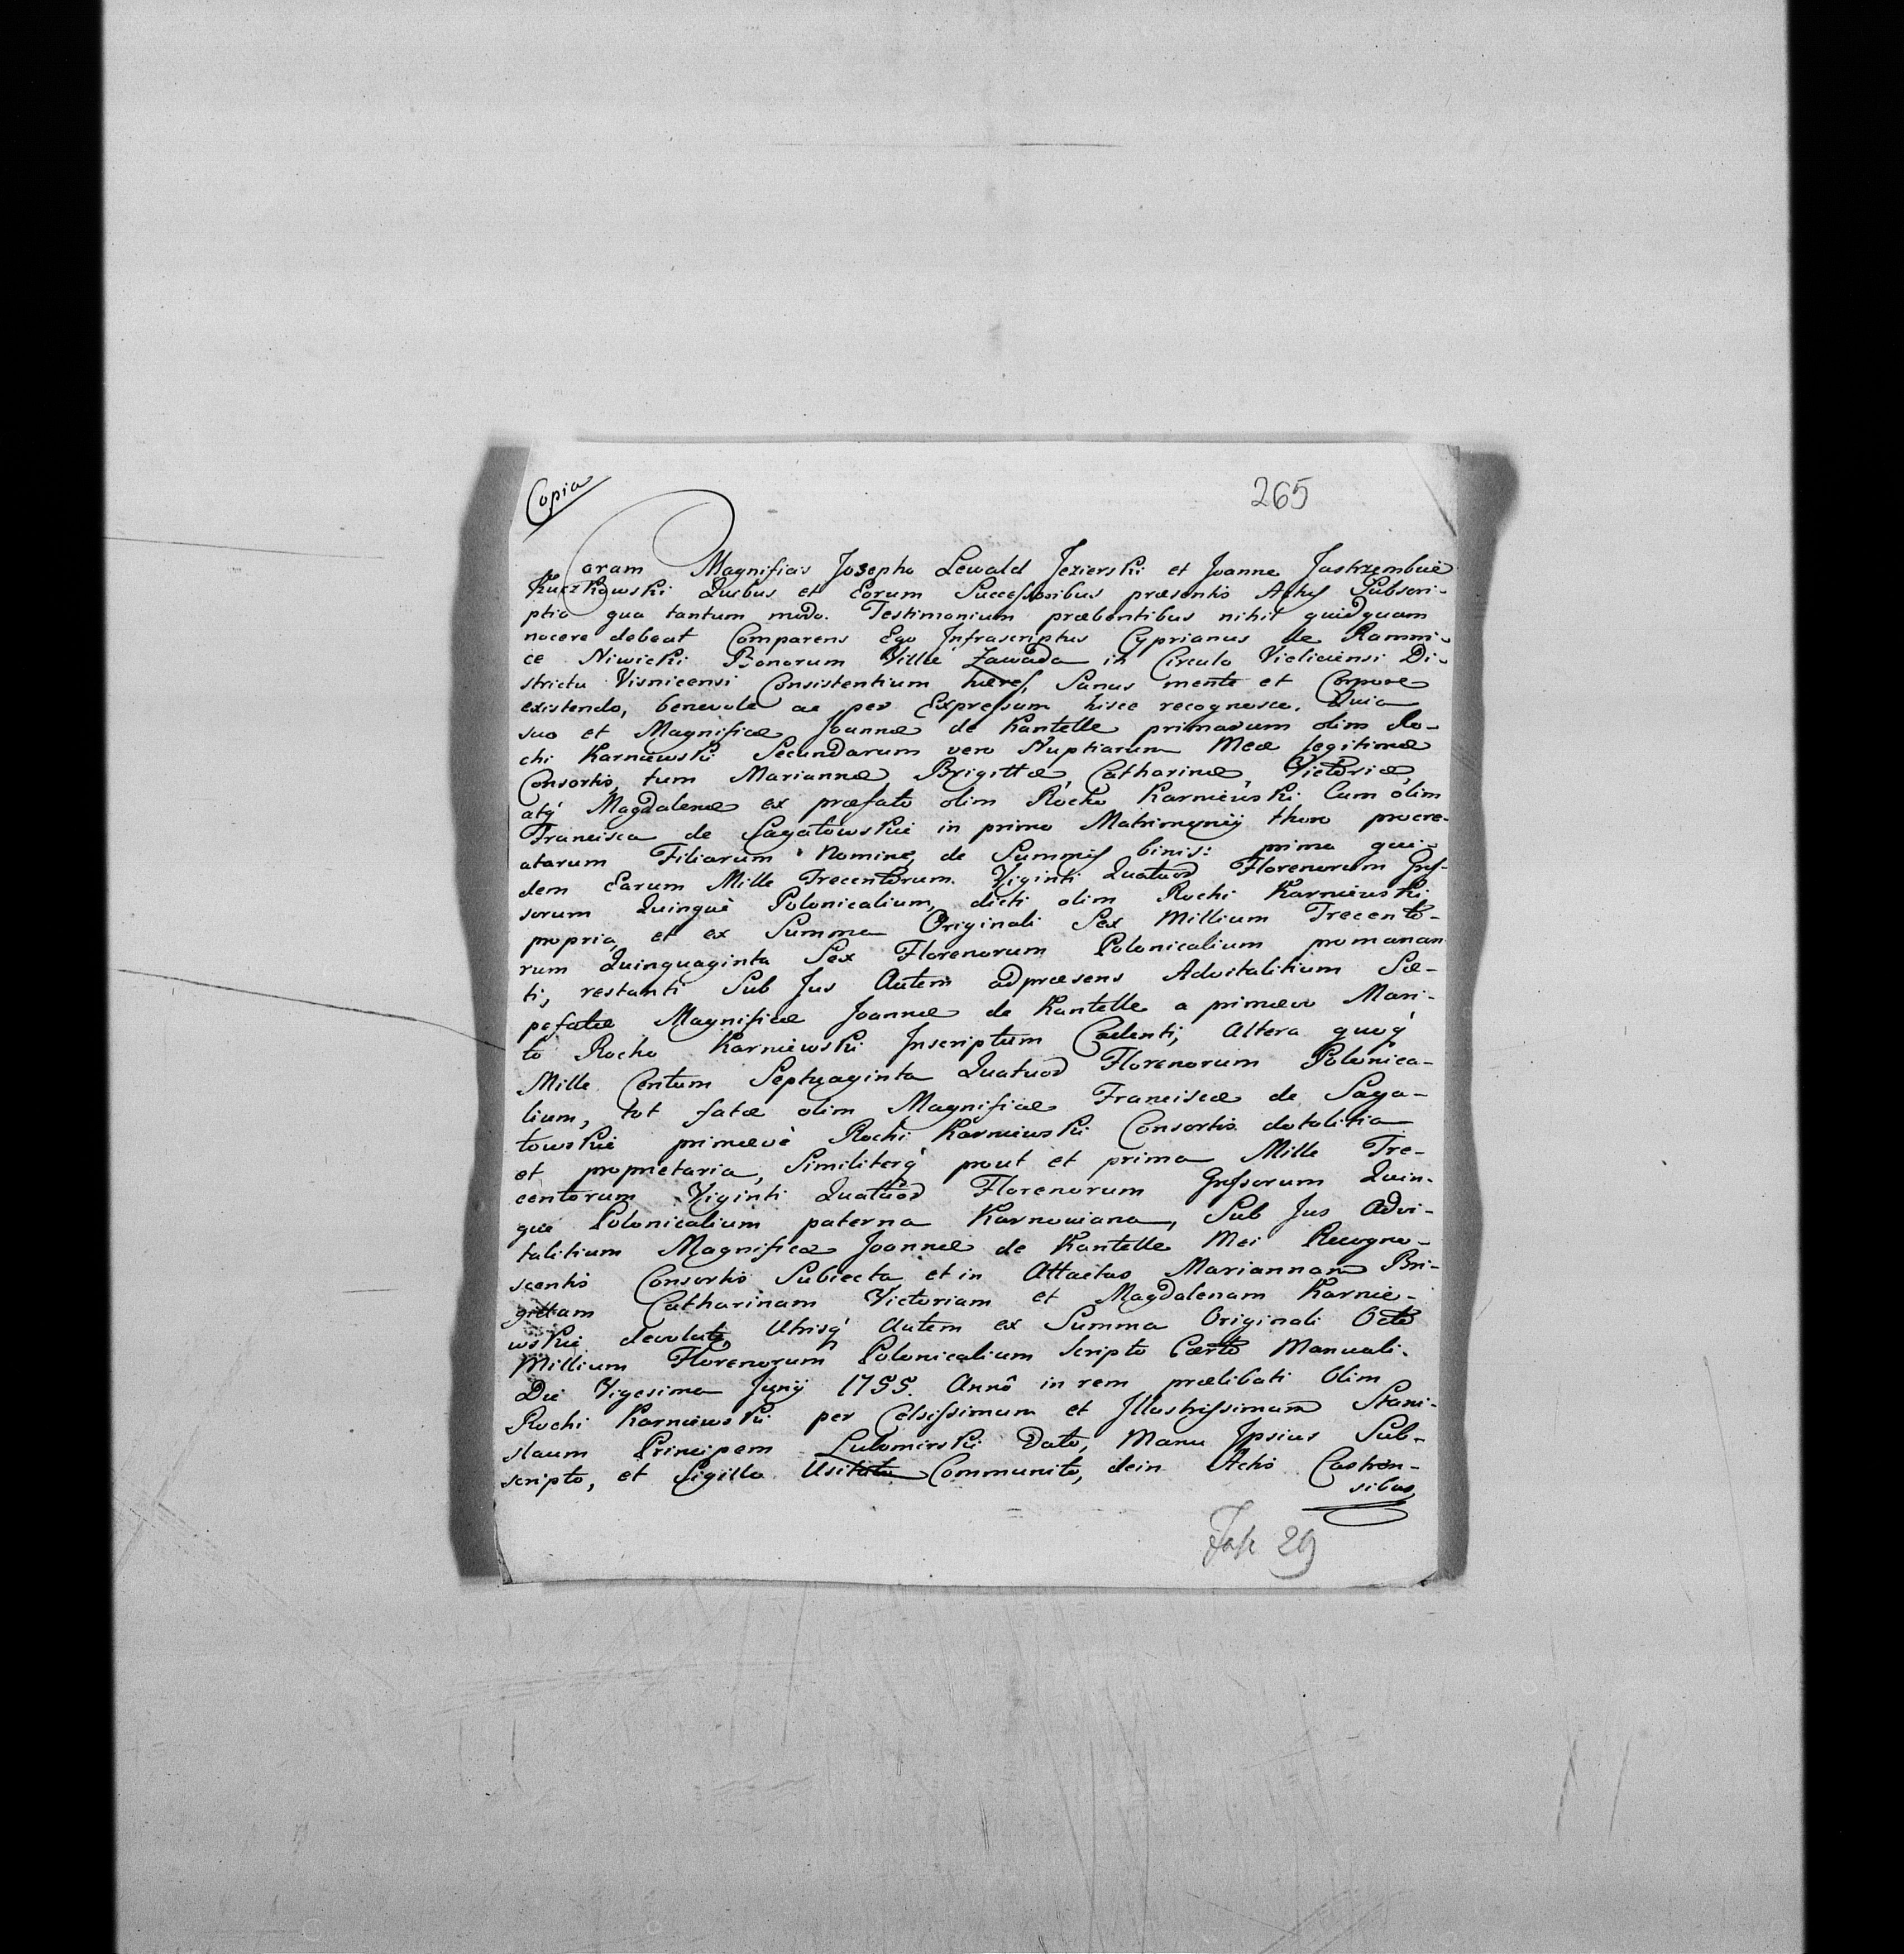 Copia
265
Coram Magnificis Josepho Lewald Jezierski et Joanne Jastrzembiec
Kuczkowski Quibus et Eorum Successoribus præsentis Actus Subscri-
ptio qua tantum modo Testimonium præbentibus nihil quidquam
nocere debeat Comparens Ego Infrascriptus Cyprianus de Rammi-
ce Niwicki Bonorum Villæ Zawada in Circulo Vieliciensi Di-
strictu Visnicensi Consistentium hæres, Sanus mente et Corpore
existendo, benevole ac per Expressum hisce recognosco. Quia
suo et Magnificæ Joannæ de Kantelle primarum olim Ro-
chi Karniewski Secundarum vero Nuptiarum Meæ legitimæ
Consortis, tum Mariannæ, Brigittæ, Catharinæ, Victoriæ,
atq́ Magdalenæ ex præfato olim Rocho Karniewski Cum olim
Francisca de Sagatowskie in primo Matrimonij thoro procre-
atarum Filiarum Nomine, de Summis binis: prima qui-
dem Earum Mille Trecentorum Viginti Quatuor Florenorum Gros-
sorum Quinque Polonicalium, dicti olim Rochi Karniewski
propria, et ex Summa Originali Sex Millium Trecento-
rum Quinquaginta Sex Florenorum Polonicalium promanan
ti, restanti Sub Jus Autem adpræsens Advitalitium Sæ-
pefatæ Magnificæ Joannæ de Kantelle a primævo Mari-
to Rocho Karniewski Inscriptum Cadenti, Altera quoq́
Mille Centum Septuaginta Quatuor Florenorum Polonica-
lium, tot fatæ olim Magnificæ Franciscæ de Saga-
towskie primævè Rochi Karniewski Consortis dotalitia
et proprietaria, Similiterq́ prout et prima Mille Tre-
centorum Viginti Quatuor Florenorum Grossorum Quin-
que Polonicalium paterna Karnowiana, Sub Jus Advi-
talitium Magnificæ Joannæ de Kantelle Mei Recogno-
scentis Consortis Subiecta et in Attactas Mariannam Bri-
gittam Catharinam Victoriam et Magdalenam Karnie-
wskie devoluta, Utrisq́ Autem ex Summa Originali Octo
Millium Florenorum Polonicalium Scripto Certo Manuali.
Die Vigesima Junij 1755. Annô in rem prælibati Olim
Rochi Karniewski per Celsissimum et Illustrissimum Stani-
slaum Principem Lubomirski Dato, Manu Ipsius Sub-
scripto, et Sigillo Usitato Communito, dein Actis Castren-
sibus
Fasc 29